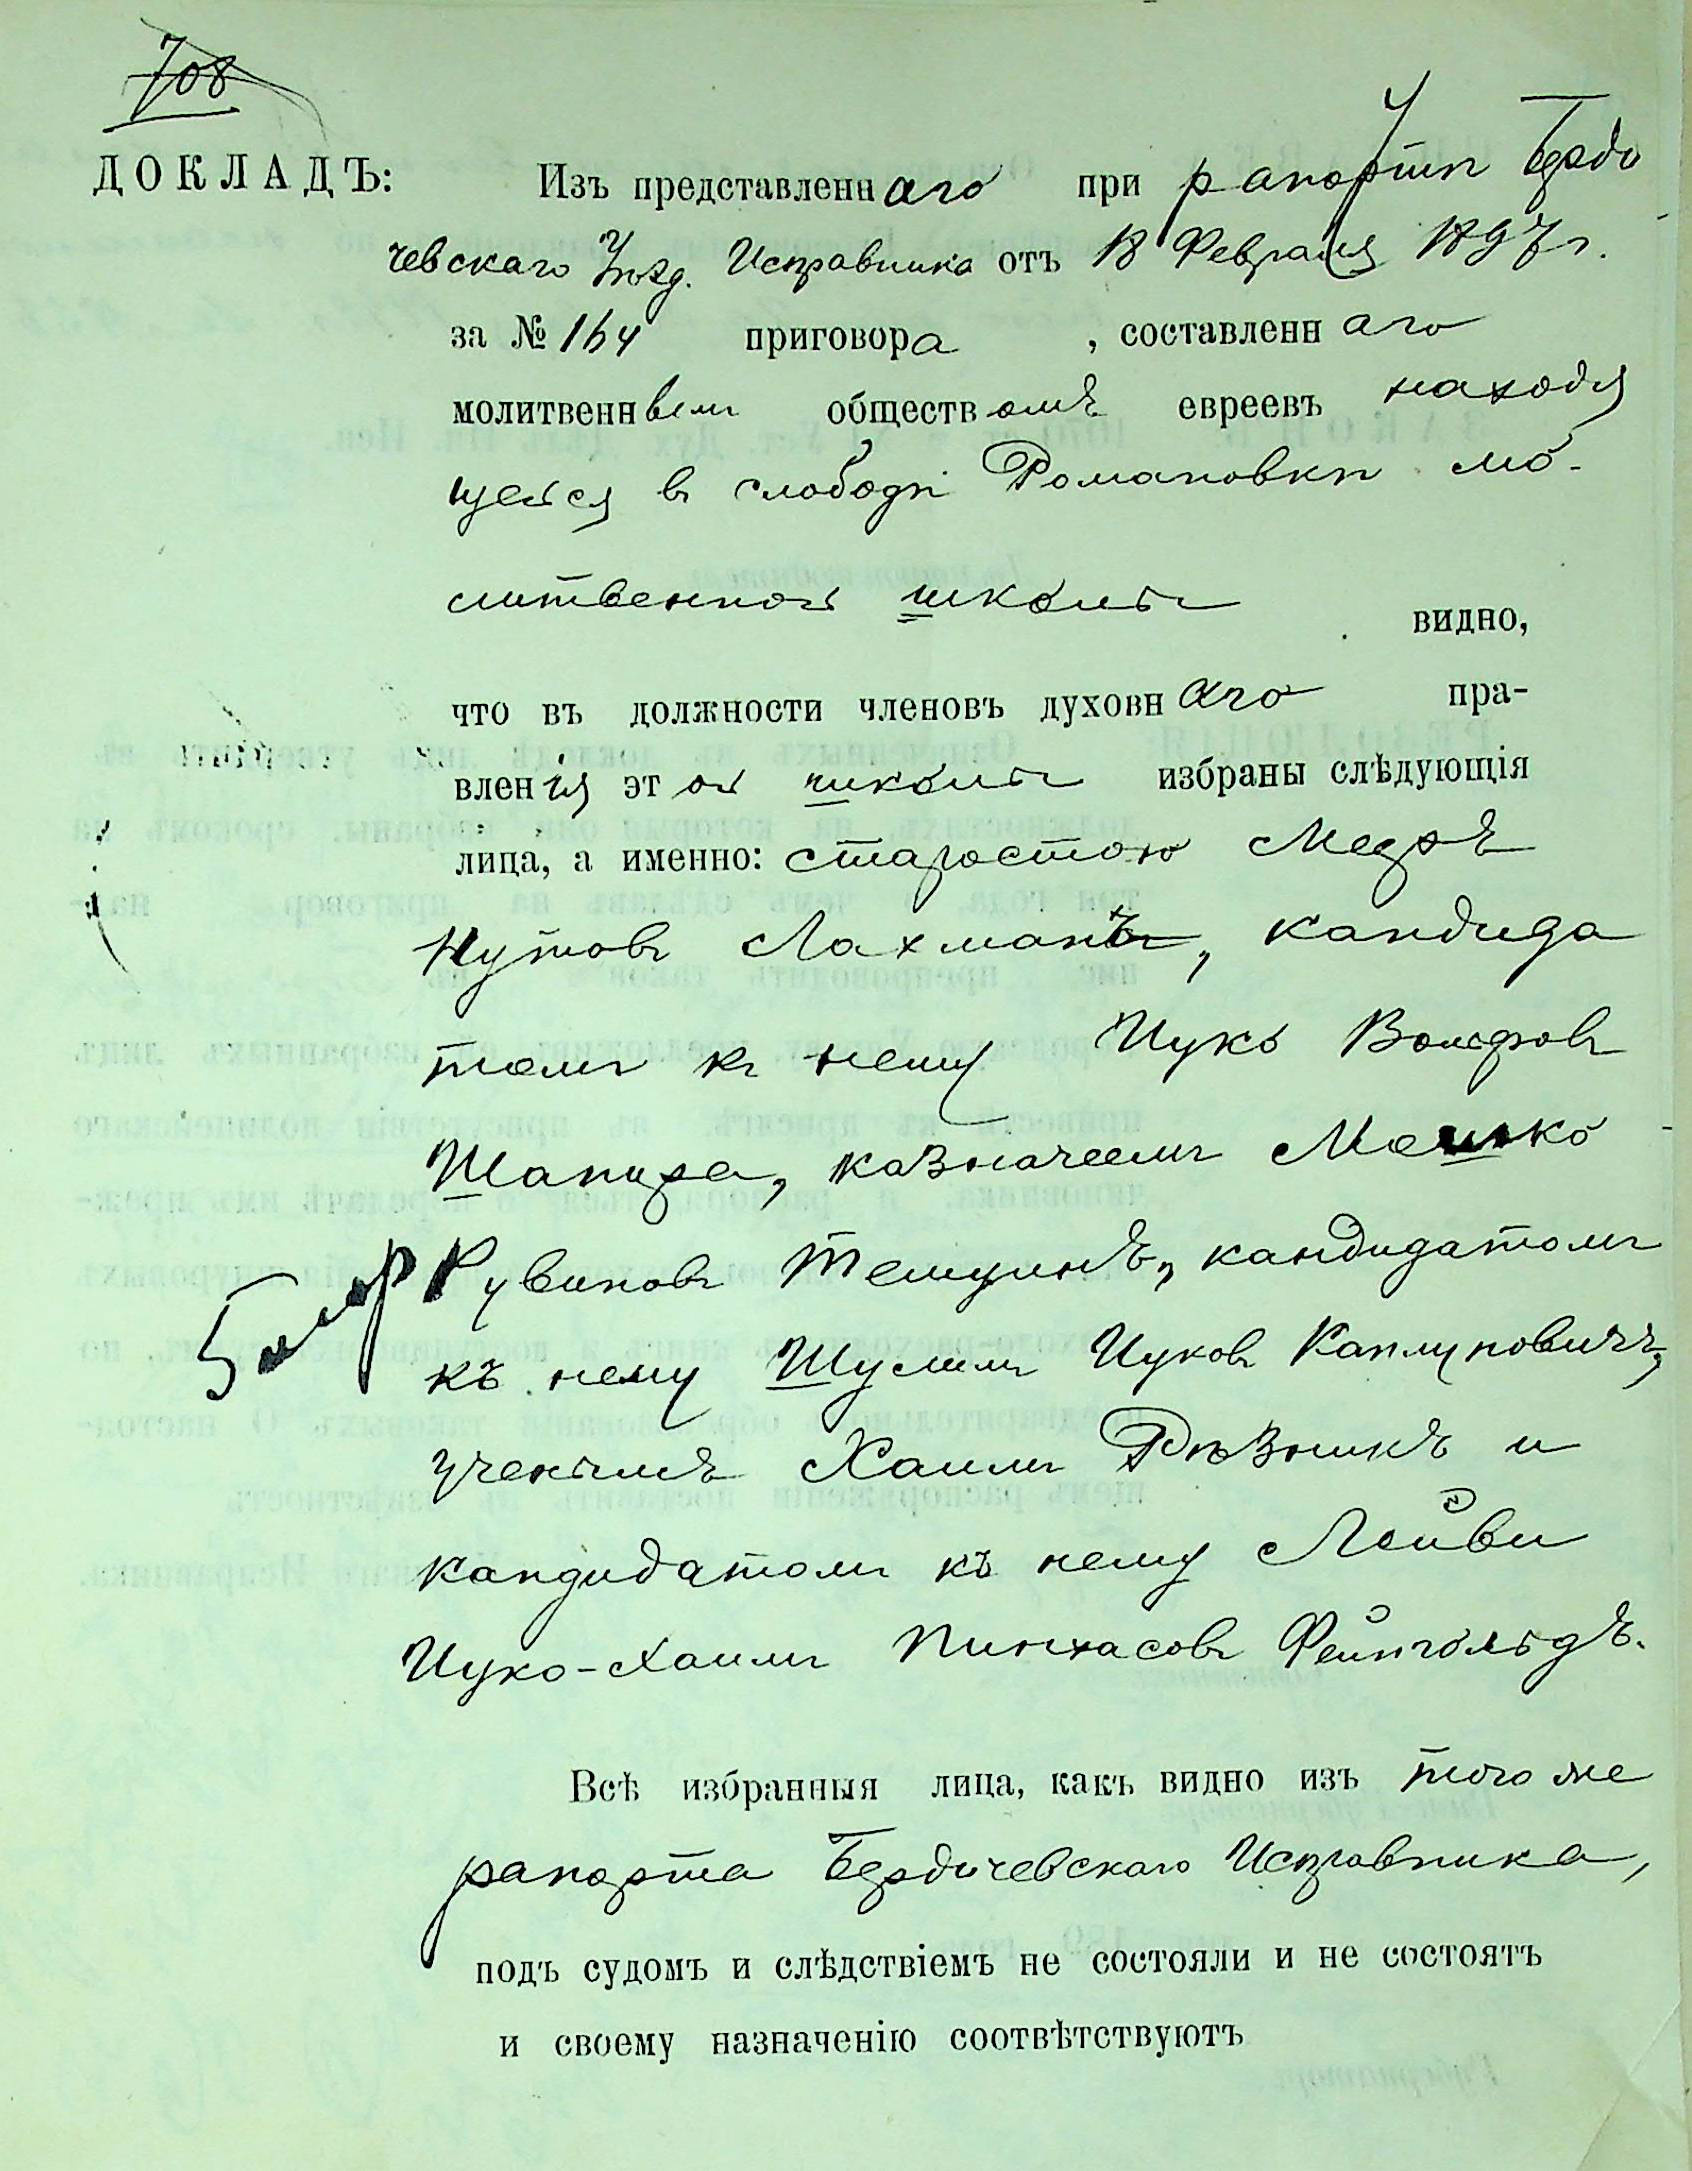 708
ДОКЛАДЪ: Изъ представленнаго при рапортѣ Берди
чевскаго Уѣзд. Исправника отъ 18 Февраля 1897 г.
за № 164 приговора , составленнаго
молитвеннымъ обществомъ евреевъ находя
щейся въ слободѣ Романовкѣ мо-
литвенной школы видно,
что въ должности членовъ духовнаго пра-
вленія этой школы избраны слѣдующія
лица, а именно: старостою Мееръ
Нутовъ Лахманъ, кандида
томъ къ нему Ицко Вольфовъ
Шапира, казначеемъ Мошко
Рувиновъ Темцинъ, кандидатомъ
къ нему Шулимъ Ицковъ Каплуновичъ,
ученымъ Хаимъ Рѣзникъ и
кандидатомъ къ нему Лейви
Ицко-Хаимъ Пинхасовъ Фейнгольдъ.
Всѣ избранныя лица, какъ видно изъ того же
рапорта Бердичевскаго Исправника,
подъ судомъ и слѣдствіемъ не состояли и не состоятъ
и своему назначенію соотвѣтствуютъ